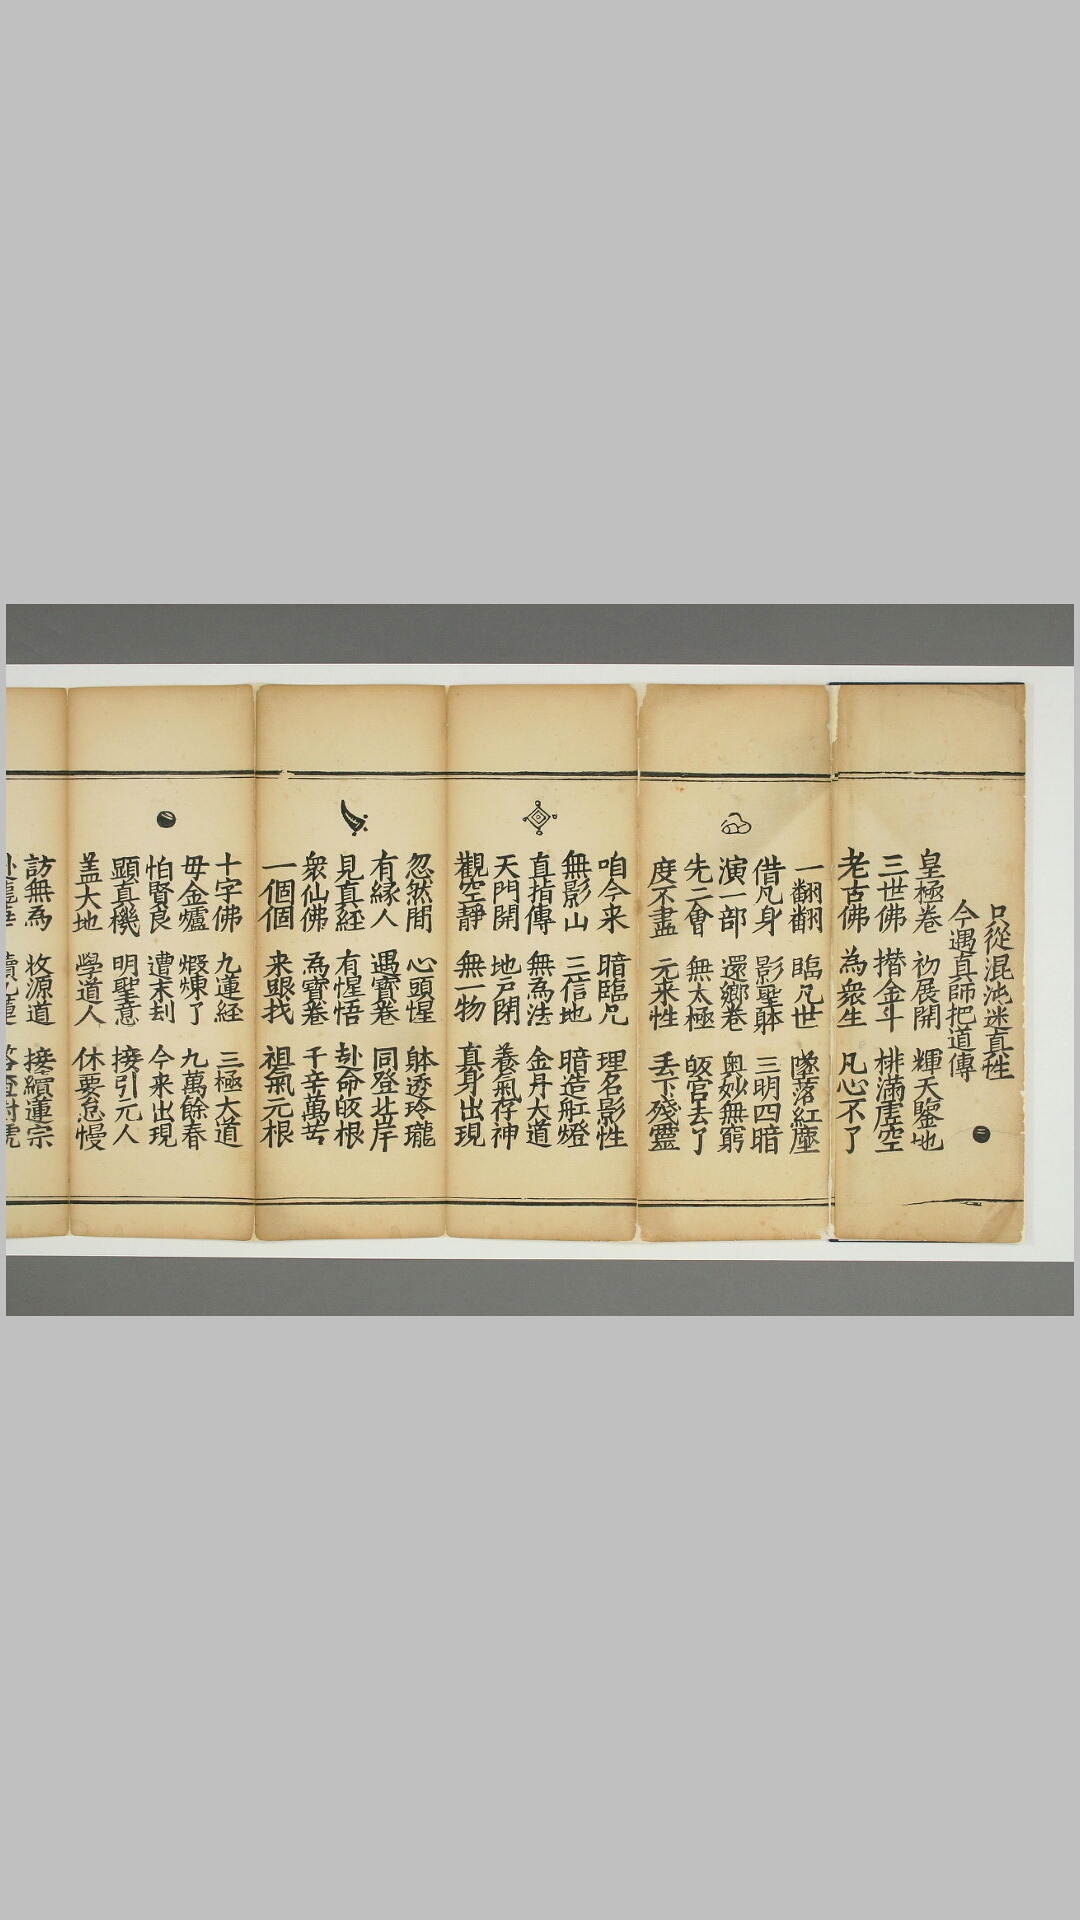 只從混沌迷真性
今遇真師把道傳
皇極卷 初展開 輝天鑒地
三世佛 㩈金斗 排滿虛空
老古佛 為衆生 凡心不了
一翻翻 臨凡世 墜落紅塵
借凡身 影聖躰 三明四暗
演一部 還鄉卷 奥妙無窮
先二會 無太極 皈宫去了
度不盡 元来性 丢下殘靈
咱今来 暗臨凡 理名影性
無影山 三信地 暗造舡燈
直指傳 無為法 金丹大道
天門開 地户閉 養氣存神
觀空靜 無一物 真身出現
忽然間 心頭惺 躰透玲瓏
有緣人 遇寳卷 同登岸
見真経 有惺悟 赴命皈根
衆仙佛 為寳卷 千辛萬苦
一個個 来跟找 祖氣元根
十字佛 九蓮経 三極大道
毋金爐 煆煉了 九萬餘春
怕賢良 遭末刦 今来出現
顕真機 明聖意 接引元人
盖大地 學道人 休要怠慢
訪無為 收源道 接續蓮宗